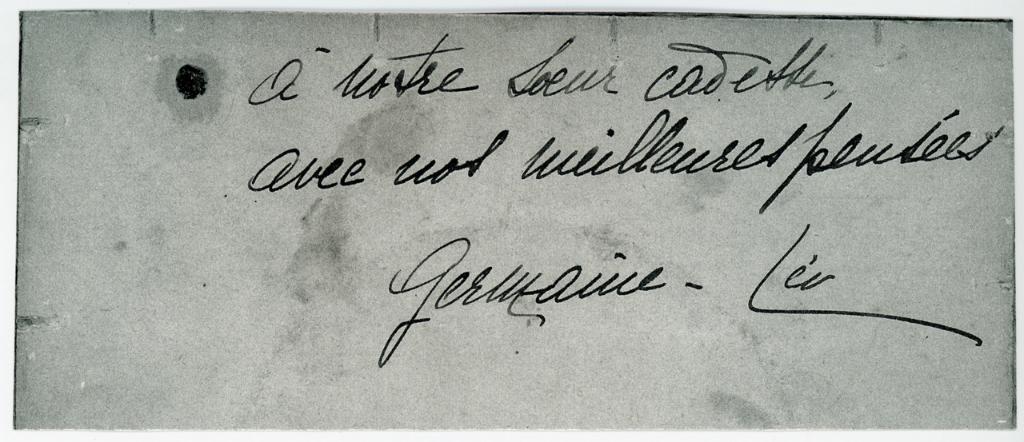 à notre soeur cadette,
avec nos meilleures pensées
Germaine - Léo